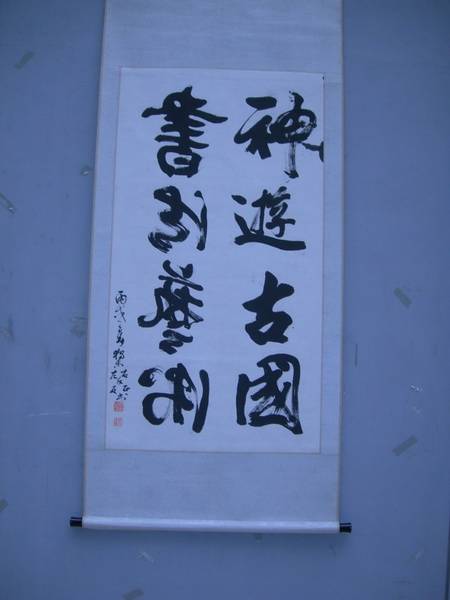 神遊古國
書法藝術
丙戌